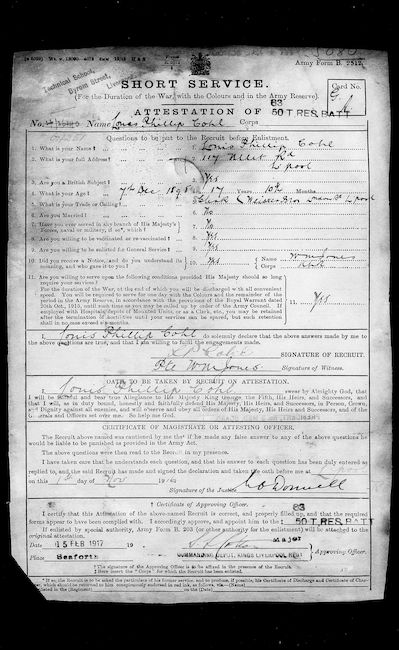 Army Form B. 2512.
Technical School,
Byrom Street,
SHORT SERVICE.
(For the Duration of the War, with the Colours and in the Army Reserve).
Card No.
ATTESTATION OF
83
50 T. RES. BATT
No. Name Louis Phillip Cohl Corps
Questions to be put to the Recruit before Enlistment.
1. What is your Name? 1. Louis Phillip Cohl
2. What is your full Address? 2. 117 Rd
L'pool
3. Are you a British Subject? 3. Yes
4. What is your Age? 7th Dec 1898 4. 17 Years 10th Months
5. What is your Trade or Calling? 5. Clerk L'pool
6. Are you Married? 6. No
7. Have you ever served in any branch of His Majesty's
Forces, naval or military, if so*, which? 7. No
8. Are you willing to be vaccinated or re-vaccinated? 8. Yes
9. Are you willing to be enlisted for General Service? 9. Yes
10. Did you receive a Notice, and do you understand its
meaning, and who gave it to you? 10. Yes Name Wm Jones
Corps
11. Are you willing to serve upon the following conditions provided His Majesty should so long
require your services?
For the duration of the War, at the end of which you will be discharged with all convenient
speed. You will be required to serve for one day with the Colours and the remainder of the
period in the Army Reserve, in accordance with the provisions of the Royal Warrant dated
20th Oct., 1915, until such time as you may be called up by order of the Army Council. If
employed with Hospitals, depots of Mounted Units, or as a Clerk, etc., you may be retained
after the termination of hostilities until your services can be spared, but such retention
shall in no case exceed six months. 11. Yes
I, Louis Phillip Cohl do solemnly declare that the above answers made by me to
the above questions are true, and that I am willing to fulfil the engagements made.
SIGNATURE OF RECRUIT.
Pte Wm Jones Signature of Witness.
OATH TO BE TAKEN BY RECRUIT ON ATTESTATION.
I, Louis Phillip Cohl swear by Almighty God, that
I will be faithful and bear true Allegiance to His Majesty King George the Fifth, His Heirs, and Successors, and
that I will, as in duty bound, honestly and faithfully defend His Majesty, His Heirs, and Successors, in Person, Crown,
and Dignity against all enemies, and will observe and obey all orders of His Majesty, His Heirs and Successors, and of the
Generals and Officers set over me. So help me God.
CERTIFICATE OF MAGISTRATE OR ATTESTING OFFICER.
The Recruit above named was cautioned by me that if he made any false answer to any of the above questions he
would be liable to be punished as provided in the Army Act.
The above questions were then read to the Recruit in my presence.
I have taken care that he understands each question, and that his answer to each question has been duly entered as
replied to, and the said Recruit has made and signed the declaration and taken the oath before me at
on this day of Nov 19
Signature of the Justice
† Certificate of Approving Officer.
I certify that this Attestation of the above-named Recruit is correct, and properly filled up, and that the required
forms appear to have been complied with. I accordingly approve, and appoint him to the ‡ 83
50 T. RES. BATT
If enlisted by special authority, Army Form B. 203 (or other authority for the enlistment) will be attached to the
original attestation.
Date 15 FEB 1917 19 Major
Place Seaforth COMMANDING DEPOT, KINGS LIVERPOOL REGT Approving Officer.
† The signature of the Approving Officer is to be affixed in the presence of the Recruit.
‡ Here insert the "Corps" for which the Recruit has been enlisted.